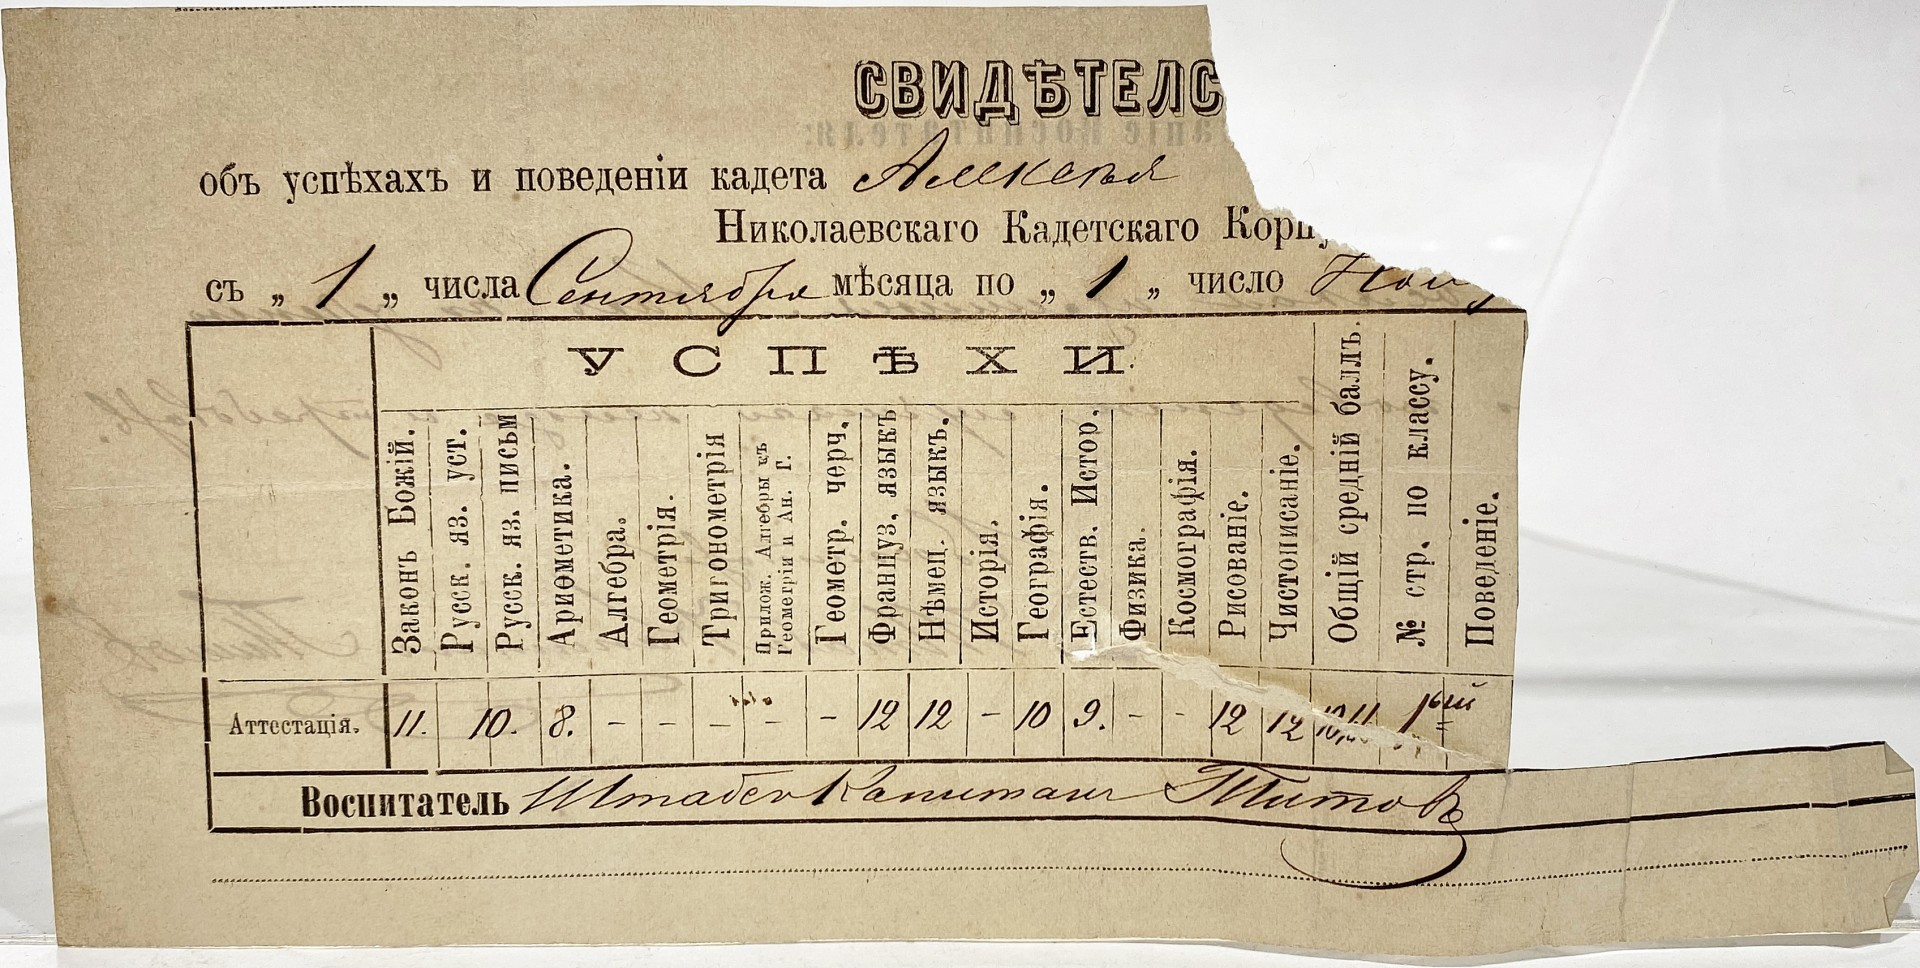 СВИДѢТЕЛС
объ успѣхахъ и поведеніи кадета Алексѣя
Николаевскаго Кадетскаго Корпу
съ „ 1 „ числа Сентября мѣсяца по „ 1 „ число
УСПѢХИ.
Законъ Божій.
Русск. яз. уст.
Русск. яз. письм
Ариѳметика.
Алгебра.
Геометрія.
Тригонометрія
Прилож. Алгебры къ
Геометріи и Ан. Г.
Геометр. черч.
Француз. языкъ
Нѣмец. языкъ.
Исторія.
Географія.
Естеств. Истор.
Физика.
Космографія.
Рисованіе.
Чистописаніе.
Общій средній баллъ.
№ стр. по классу.
Поведеніе.
Аттестація. 11. 10. 8. – – – – – – 12 12 – 10 9. – – 12 12
Воспитатель Штабсъ Капитанъ Титовъ